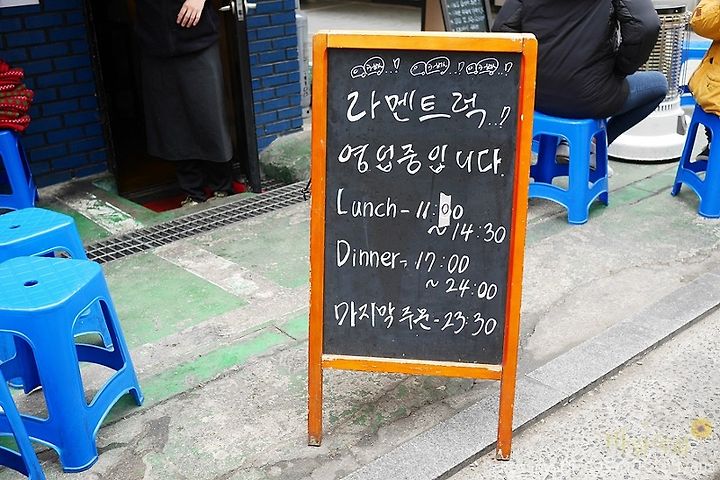 라멘트럭..!
영업중입니다.
Lunch - 11:00
~ 14:30
Dinner - 17:00
~ 24:00
마지막 주문 - 23:30